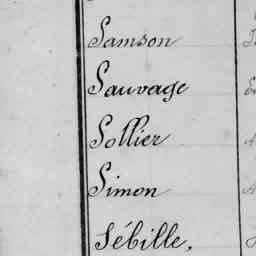 Samson
Sauvage
Sollier
Simon
Sébille,